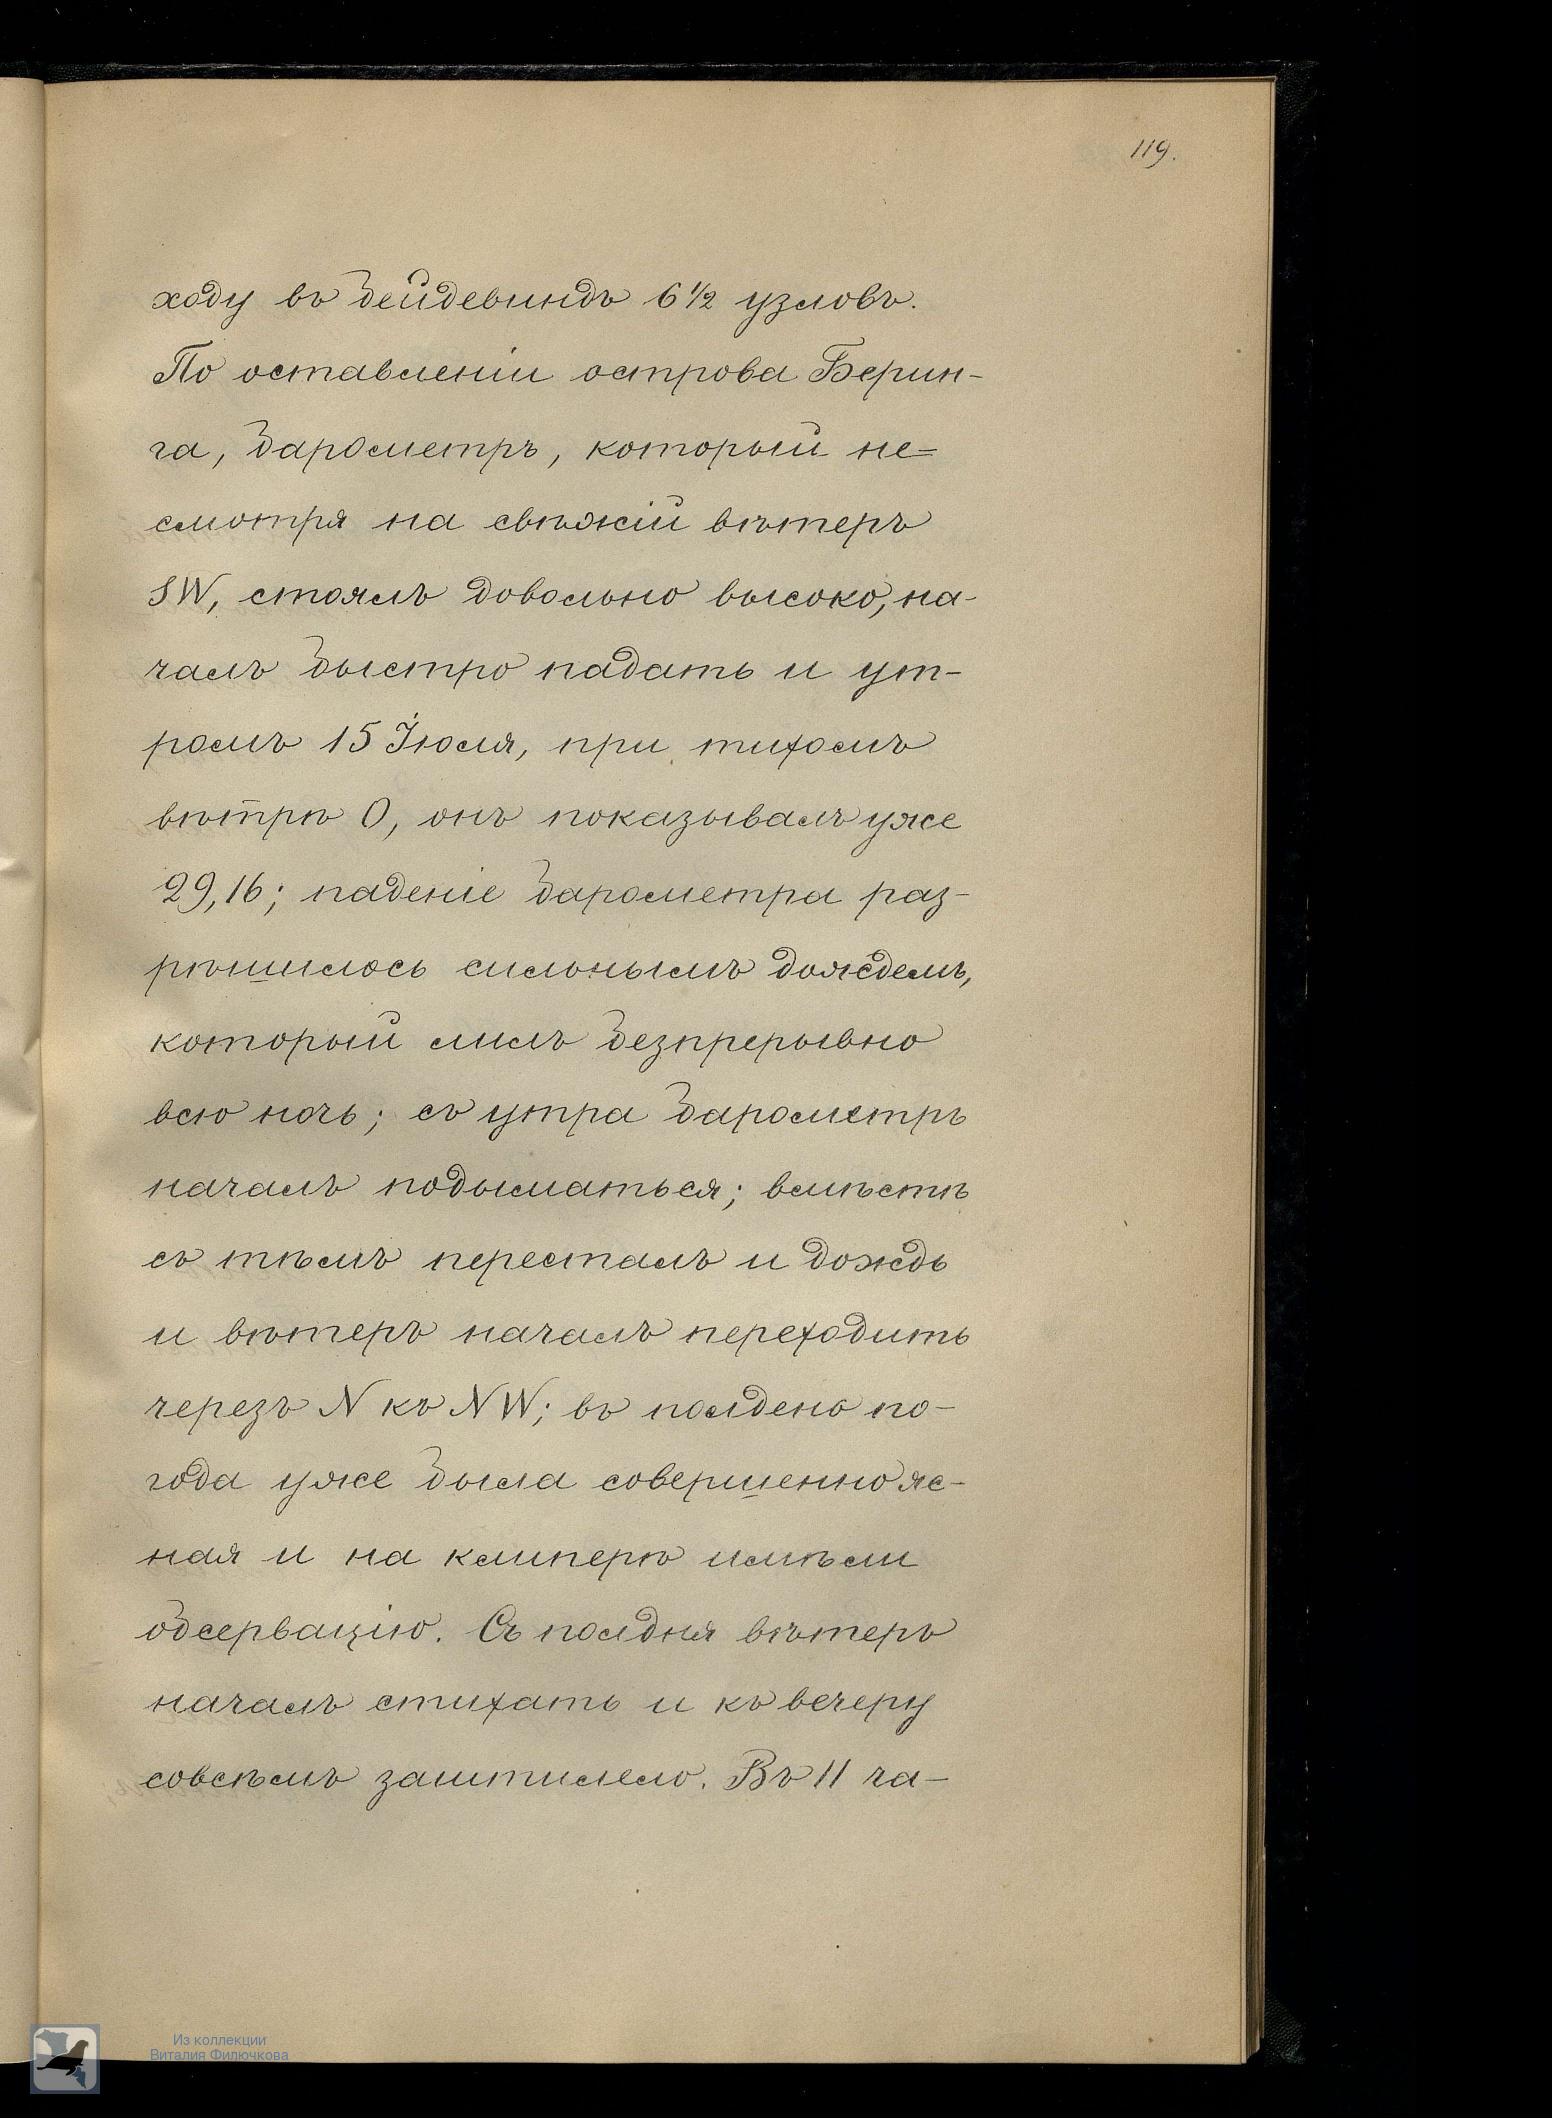 119.
ходу въ бейдевиндъ 6½ узловъ.
По оставленіи острова Берин-
га, барометръ, который не=
смотря на свѣжій вѣтеръ
SW, стоялъ довольно высоко, на-
чалъ быстро падать и ут-
ромъ 15 Іюля, при тихомъ
вѣтрѣ O, онъ показывалъ уже
29,16; паденіе барометра раз-
рѣшилось сильнымъ дождемъ,
который лилъ безпрерывно
всю ночь; съ утра барометръ
началъ подыматься; вмѣстѣ
съ тѣмъ пересталъ и дождь
и вѣтеръ началъ переходить
черезъ N къ NW; въ полдень по-
года уже была совершенно яс-
ная и на клиперѣ имѣли
обсервацію. Съ полдня вѣтеръ
началъ стихать и къ вечеру
совсѣмъ заштилело. Въ 11 ча-
Из коллекции
Виталия Филючкова